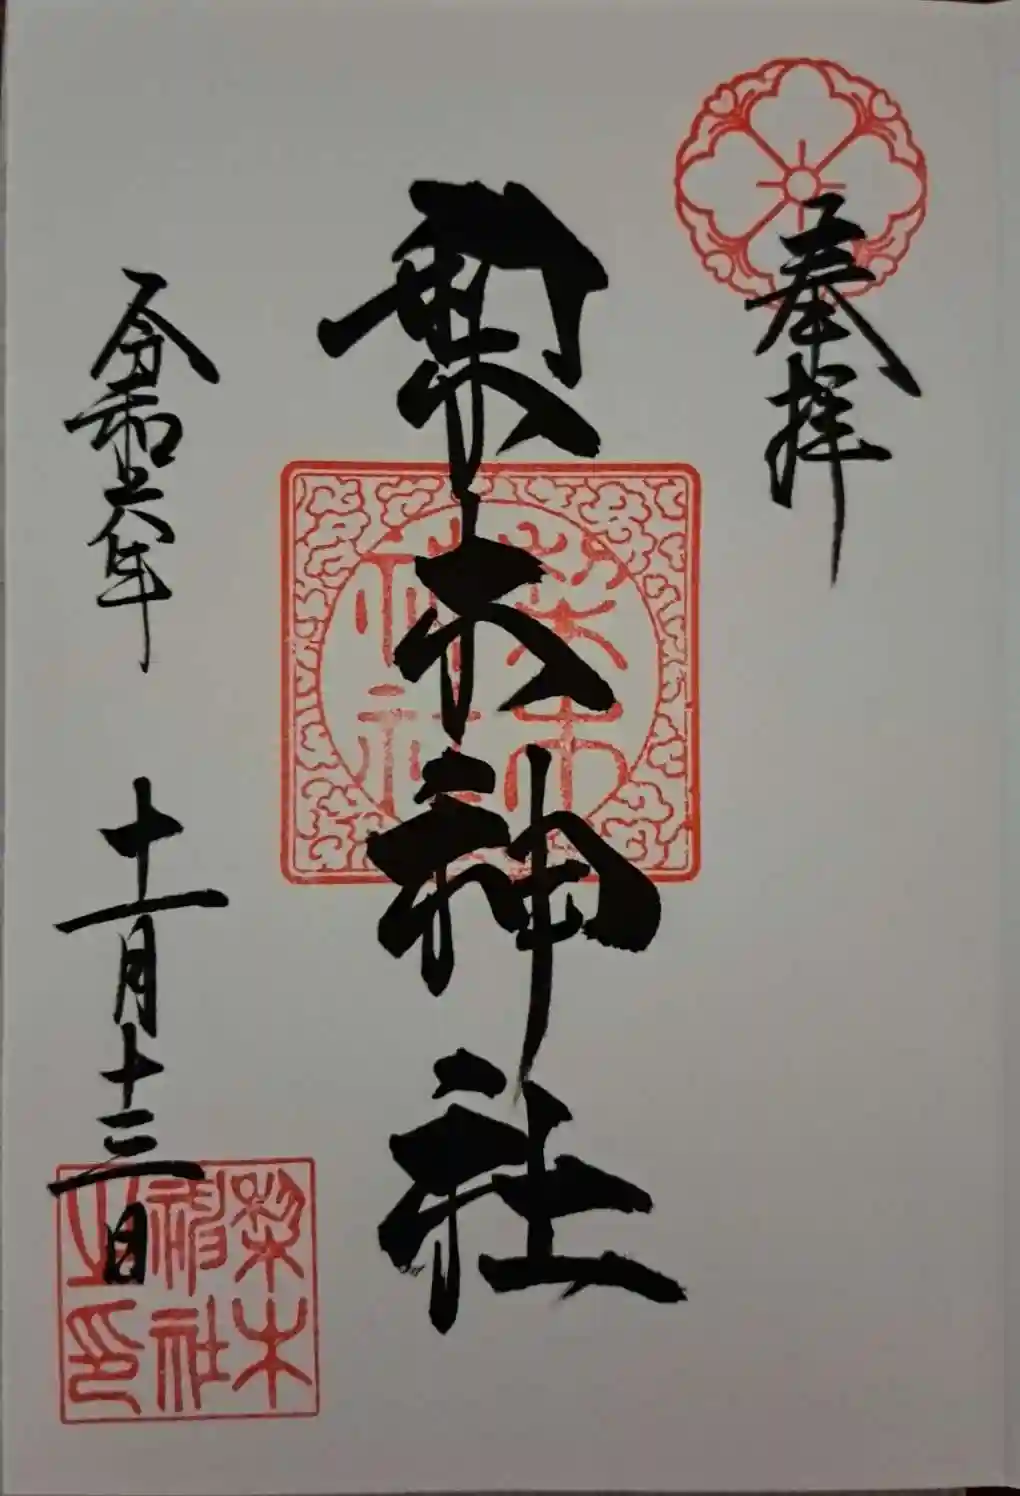 奉拝
梨木神社
令和六年 十一月十三日
梨木
神社
梨木
神社
之印